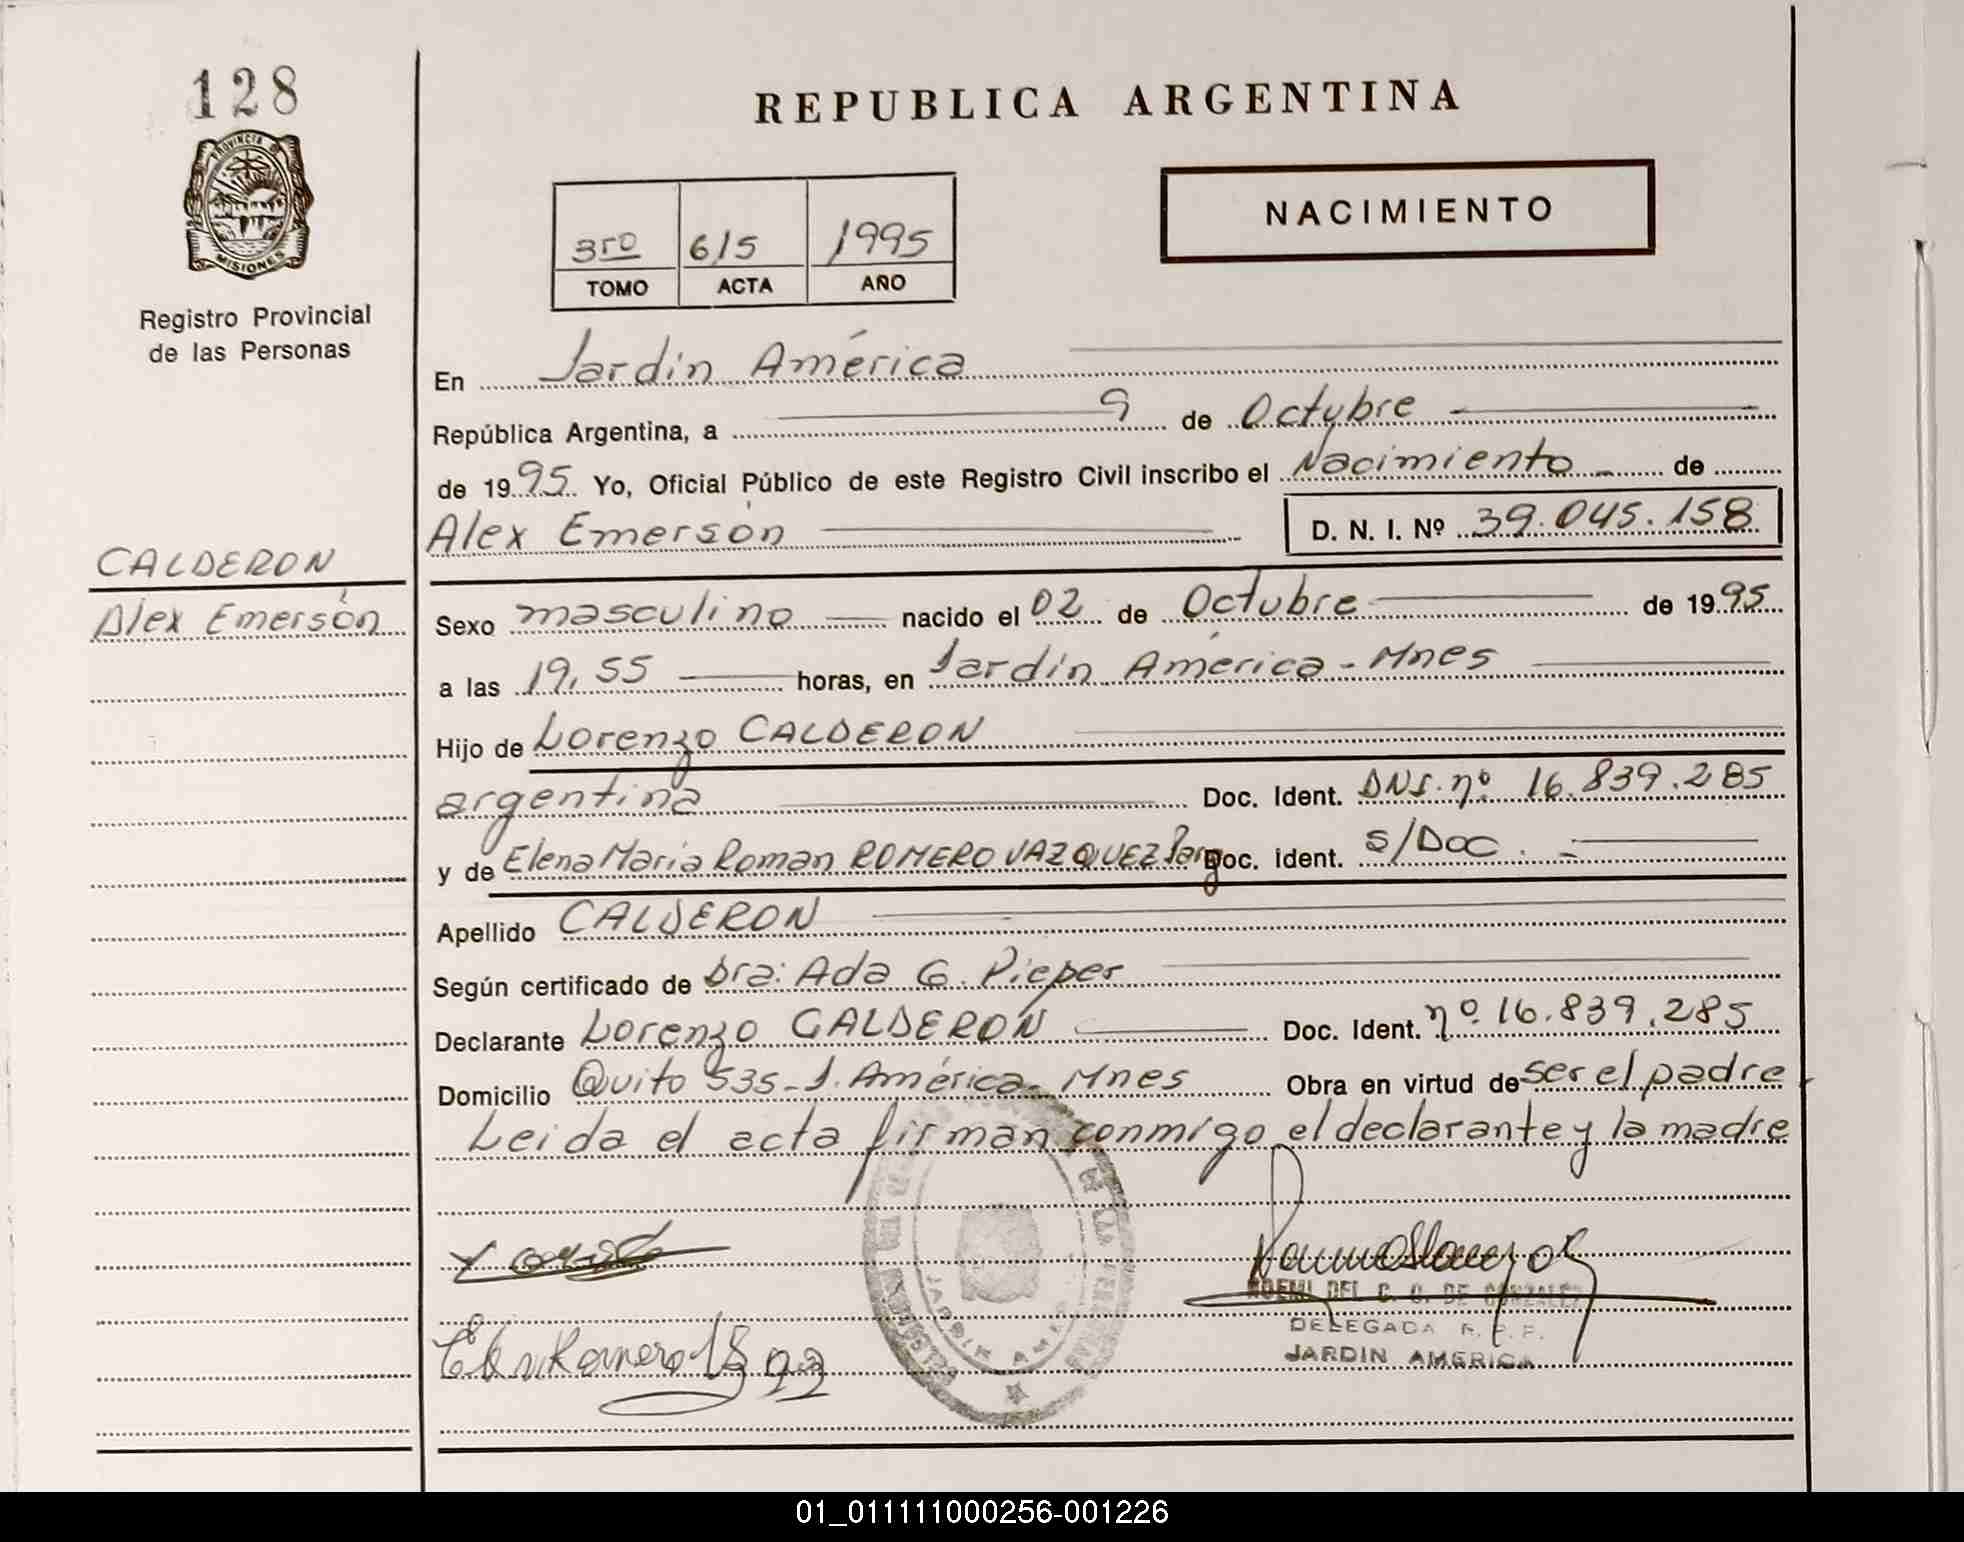 128
PROVINCIA DE
MISIONES
Registro Provincial
de las Personas
CALDERON
Alex Emersón
REPUBLICA ARGENTINA
NACIMIENTO
3ro 615 1995
TOMO ACTA AÑO
En Jardín América
República Argentina, a 9 de Octubre
de 1995 Yo, Oficial Público de este Registro Civil inscribo el Nacimiento de
Alex Emersón D. N. I. Nº 39.045.158
Sexo masculino nacido el 02 de Octubre de 1995
a las 19,55 horas, en Jardín América - Mnes
Hijo de Lorenzo CALDERON
argentina Doc. Ident. DNI. nº 16.839.285
y de Elena María Roman ROMERO VAZQUEZ Parg Doc. Ident. S/Doc. -
Apellido CALDERON
Según certificado de Dra: Ada G. Pieper
Declarante Lorenzo CALDERON Doc. Ident. nº 16.839.285
Domicilio Quito 535 - J. América - Mnes Obra en virtud de ser el padre
Leida el acta firman conmigo el declarante y la madre
NOEMI DEL C. G. DE GONZALEZ
DELEGADA R. P. P.
JARDIN AMERICA
01_011111000256-001226